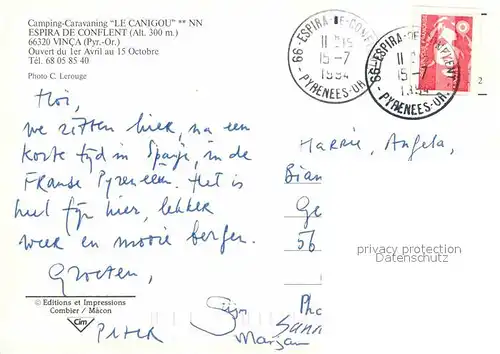 Camping-Caravaning "LE CANIGOU" ** NN
ESPIRA DE CONFLENT (Alt. 300 m.)
66320 VINÇA (Pyr.-Or.)
Ouvert du 1er Avril au 15 Octobre
Tél. 68 05 85 40
Photo C. Lerouge
66 - ESPIRA-DE-CONFLENT
11 H15
15-7
1994
PYRENEES-OR.
66 - ESPIRA-DE-CONFLENT
15-7
1994
PYRENEES-OR.
2
Hoi,
we zitten hier, na een
korte tijd in Spanje, in de
Franse Pyreneeën. Het is
heel fijn hier, lekker
weer en mooie bergen.
Groeten,
Peter
Marjan
Harrie, Angela,
Bian
Ge
56
privacy protection
Datenschutz
© Editions et Impressions
Combier / Mâcon
Cim